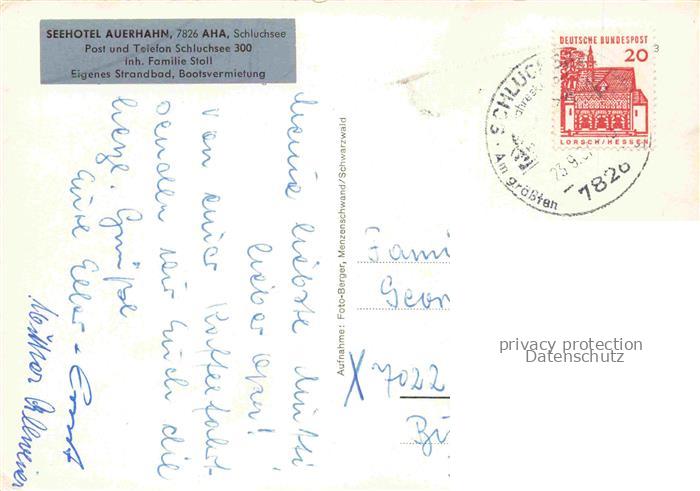 SEEHOTEL AUERHAHN, 7826 AHA, Schluchsee
Post und Telefon Schluchsee 300
Inh. Familie Stoll
Eigenes Strandbad, Bootsvermietung
Meine liebste Mutti
lieber Opa!
Von einer Kaffeefahrt
senden wir Euch die
herzl. Grüße
Eure Ernst
Aufnahme: Foto-Berger, Menzenschwand/Schwarzwald
DEUTSCHE BUNDESPOST
20
LORSCH/HESSEN
SCHLUCHSEE
Am größten
23.9.6
7826
Fami
Geor
X 7022
privacy protection
Datenschutz